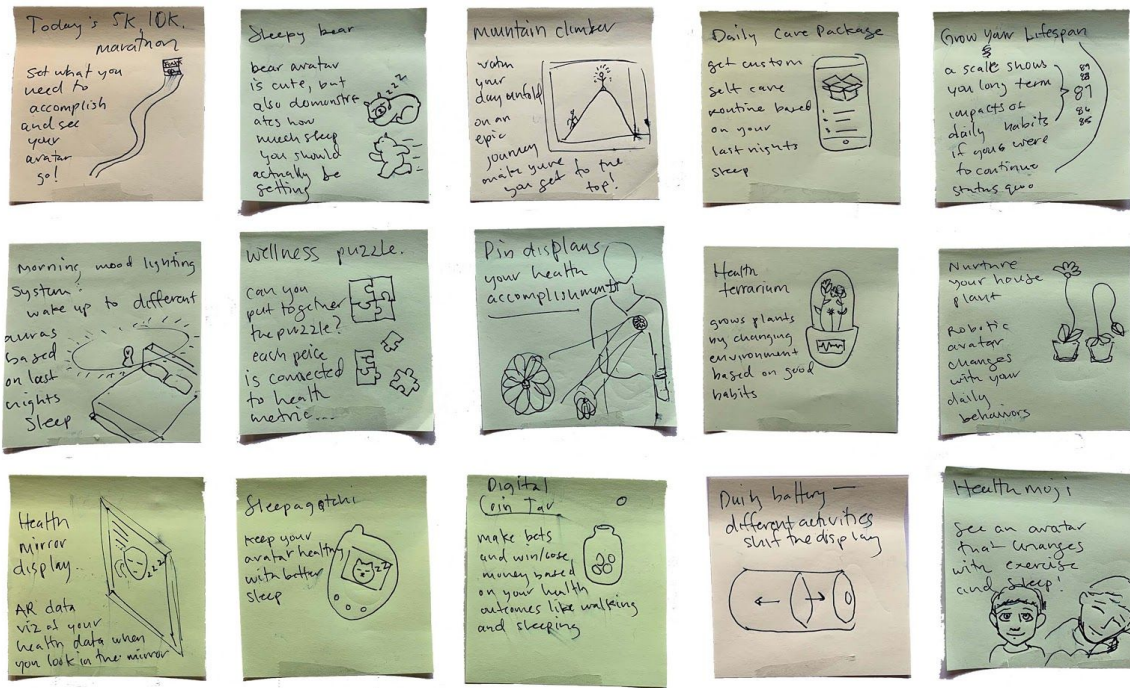 Today's 5K, 10K,
marathon
set what you
need to
accomplish
and see
your
avatar
go!
Sleepy bear
bear avatar
is cute, but
also demonstr
ates how
much sleep
you should
actually be
getting
zzz
mountain climber
watch
your
day unfold
on an
epic
journey
make sure to the
you get top!
Daily Care Package
get custom
self care
routine based
on your
last nights
sleep
Grow your Lifespan
&
a scale shows
you long term
impacts of
daily habits
if you were
to continue
status quo
89
88
87
86
85
morning mood lighting
system:
wake up to different
auras
based
on last
nights
sleep
wellness puzzle.
can you
put together
the puzzle?
each peice
is connected
to health
metric...
Pin displays
your health
accomplishments
Health
terrarium
grows plants
by changing
environment
based on good
habits
Nurture
your house
plant
Robotic
avatar
changes
with your
daily
behaviors
Health
mirror
display
AR data
viz of your
health data when
you look in the mirror
zzz
Sleepagotchi
keep your
avatar healthy
with better
sleep
zz
Digital
Coin Jar
make bets
and win/lose
money based
on your health
outcomes like walking
and sleeping
Daily battery —
different activities
shift the display
Health moji
see an avatar
that changes
with exercise
and sleep!